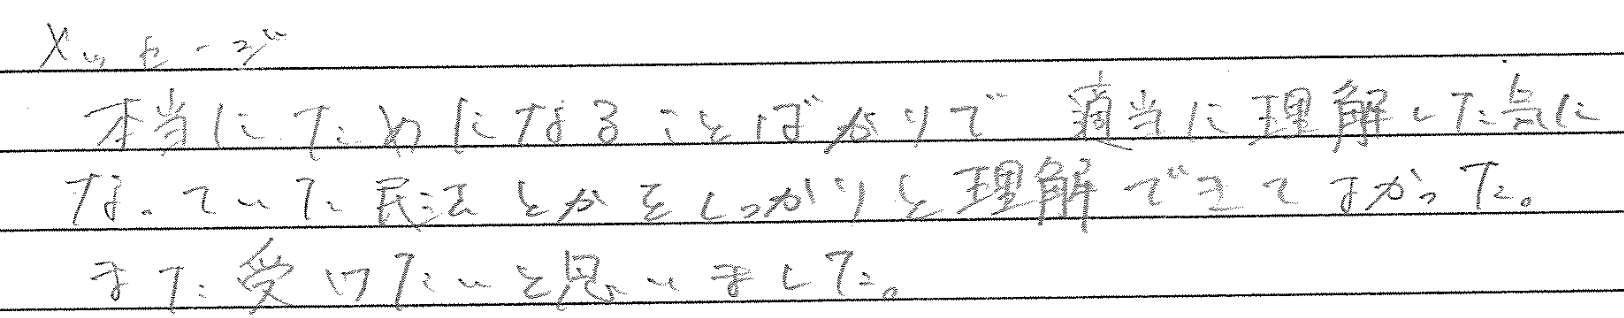 メッセージ
本当にためになることばかりで 適当に理解した気に
なっていた民法とかをしっかりと理解できてよかった。
また受けたいと思いました。